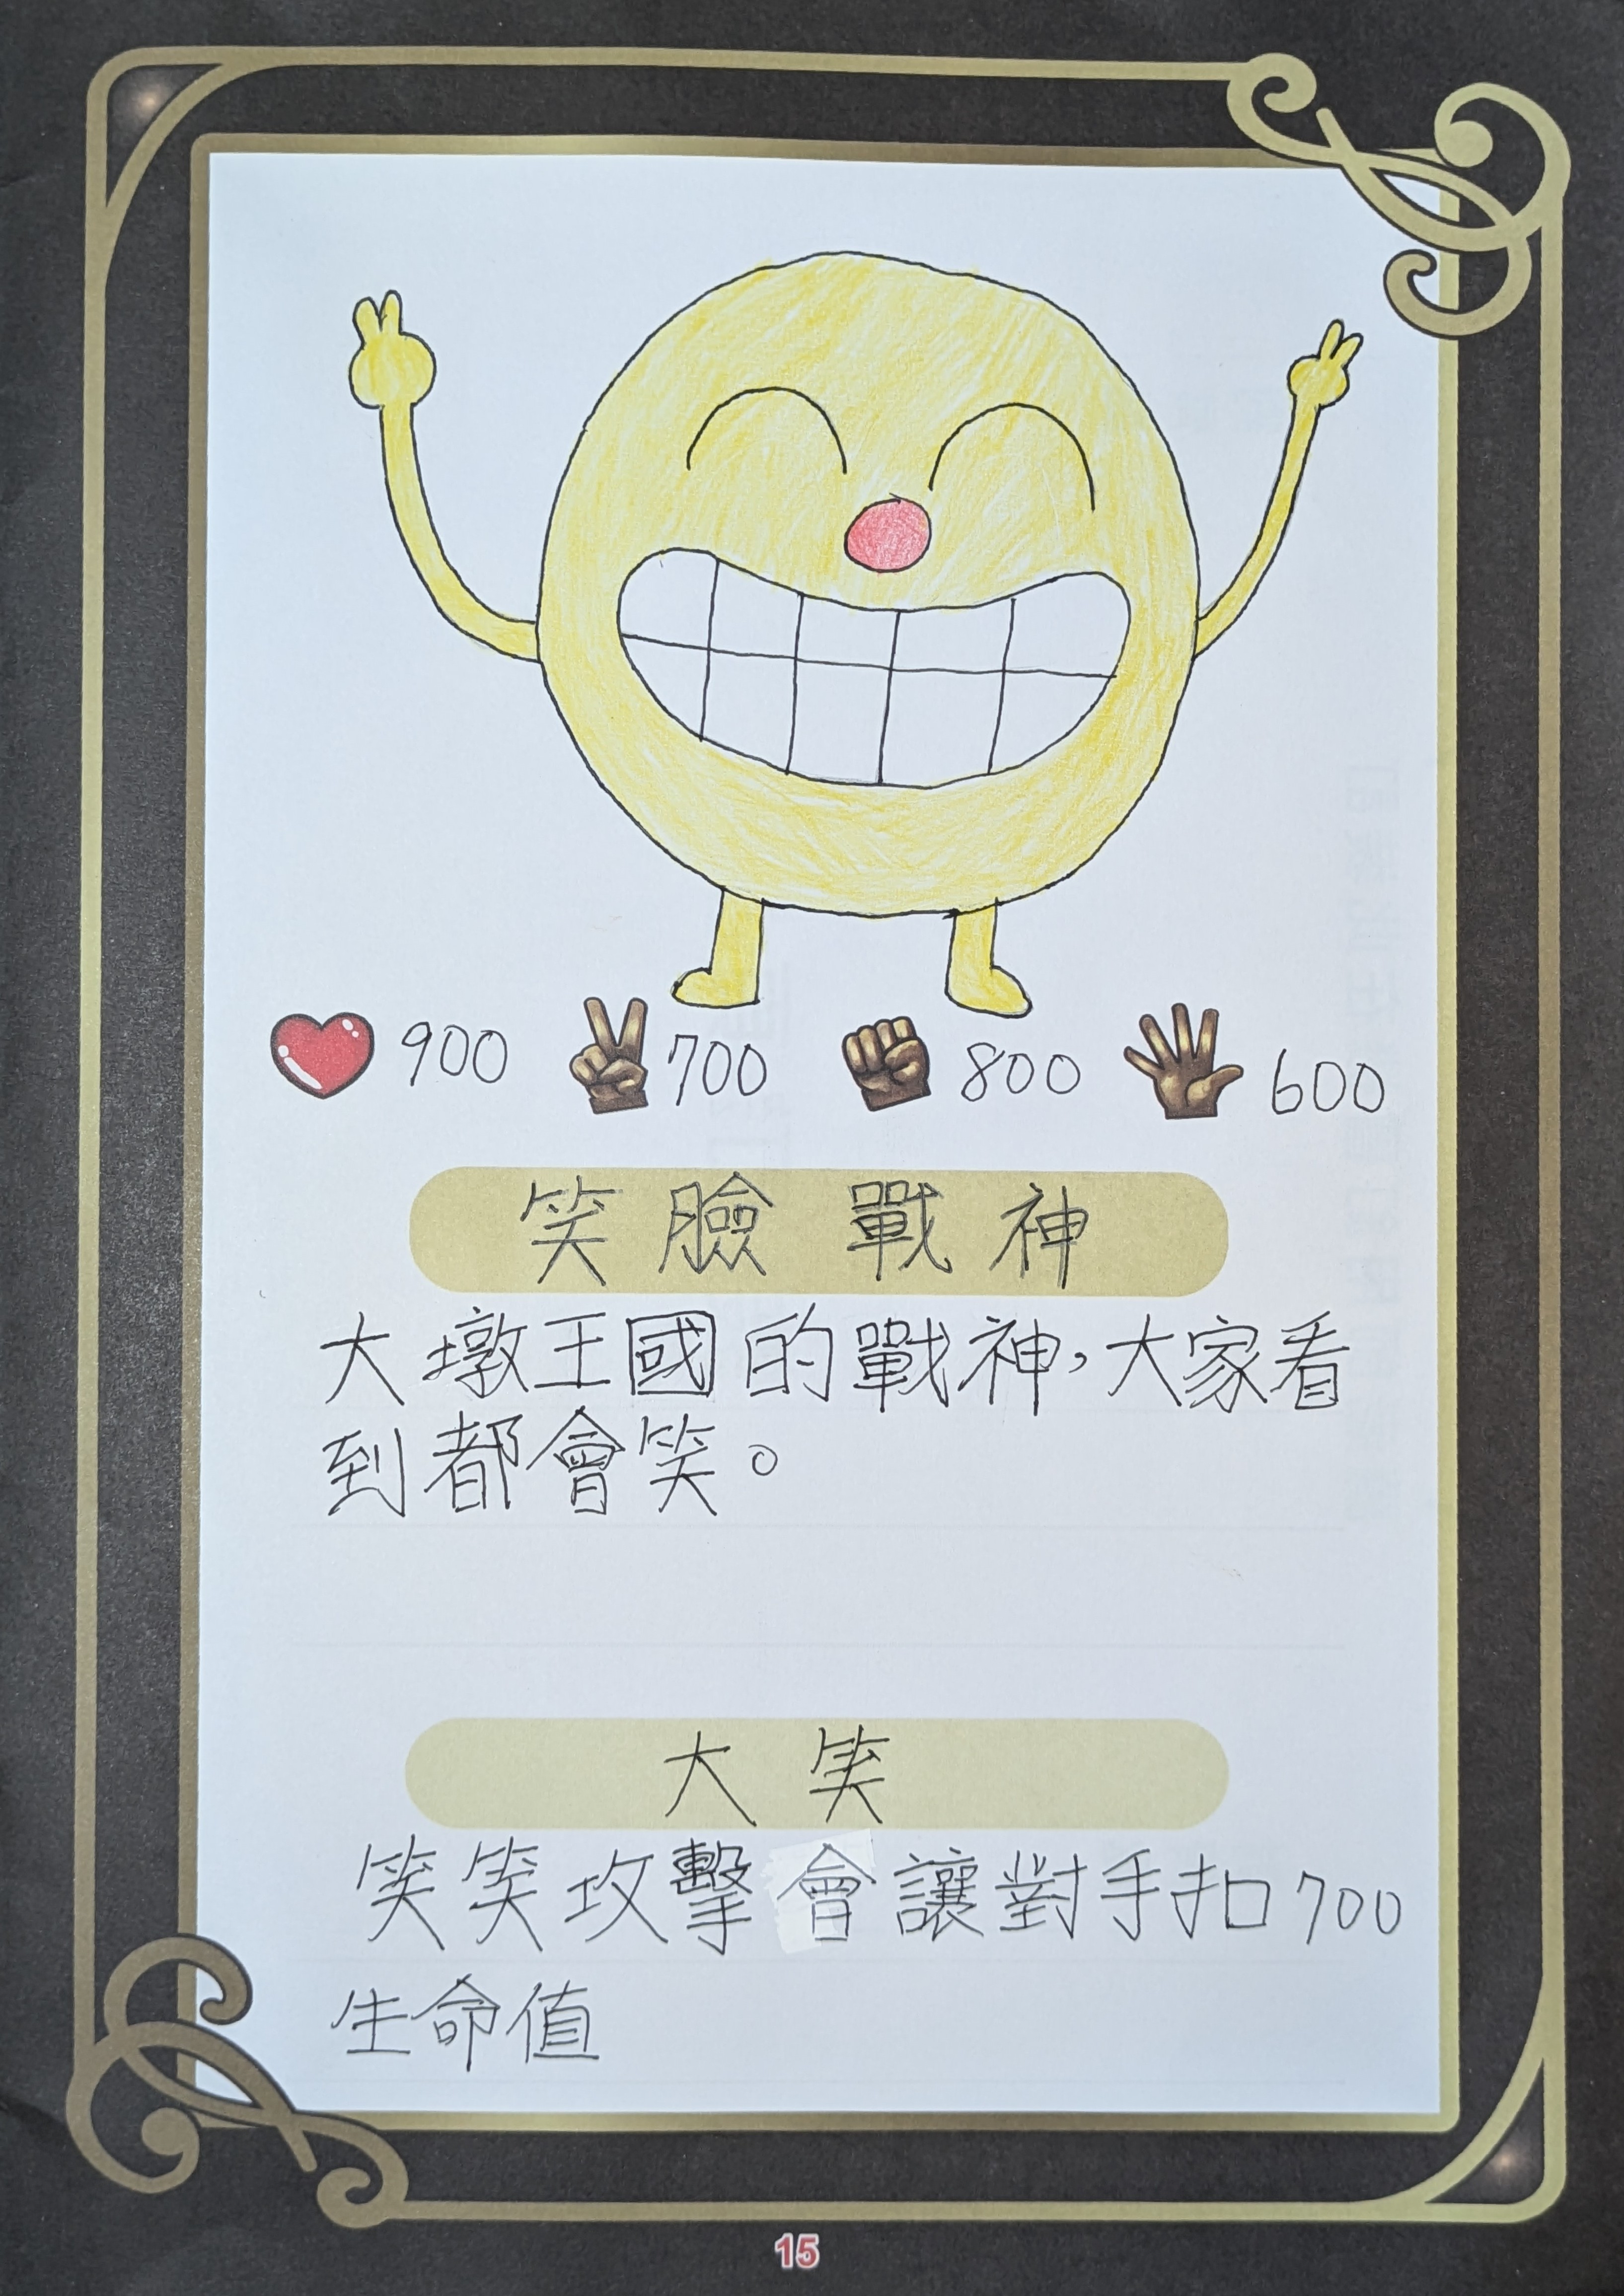 900 700 800 600
笑臉戰神
大墩王國的戰神,大家看
到都會笑。
大笑
笑笑攻擊會讓對手扣700
生命值
15